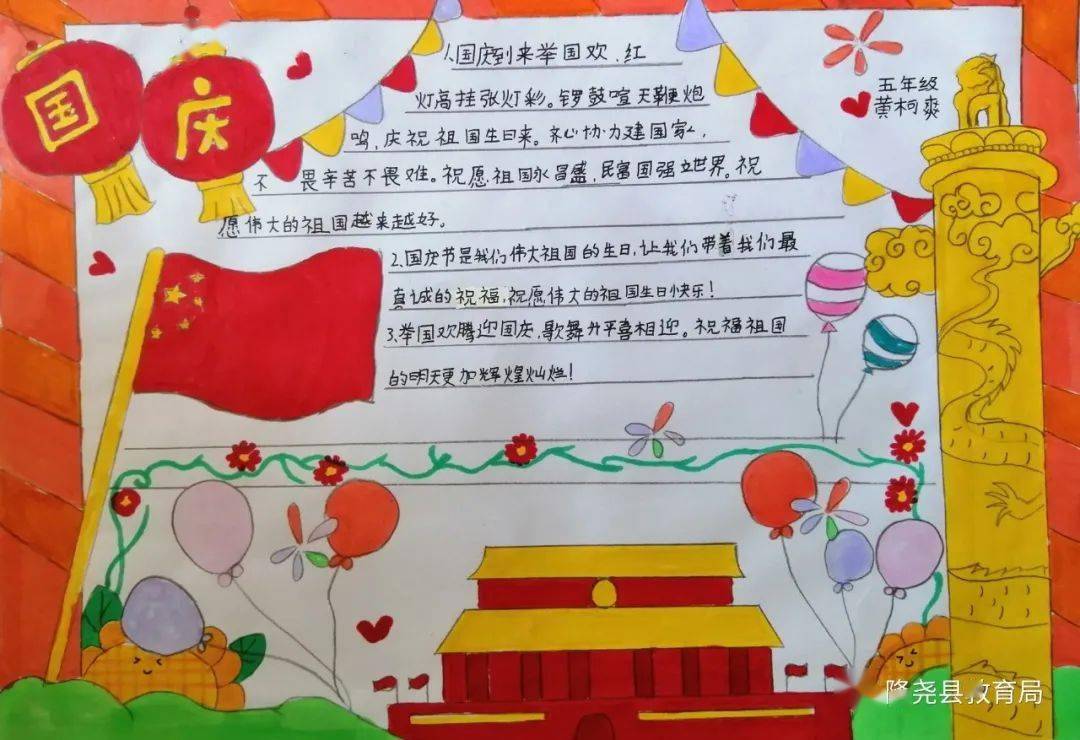 国庆
1.国庆到来举国欢,红
灯高挂张灯彩。锣鼓喧天鞭炮
鸣,庆祝祖国生日来。齐心协力建国家,
不畏辛苦不畏难。祝愿祖国永昌盛,民富国强立世界。祝
愿伟大的祖国越来越好。
2.国庆节是我们伟大祖国的生日,让我们带着我们最
真诚的祝福,祝愿伟大的祖国生日快乐!
3.举国欢腾迎国庆,歌舞升平喜相迎。祝福祖国
的明天更加辉煌灿烂!
五年级
黄柯爽
隆尧县教育局